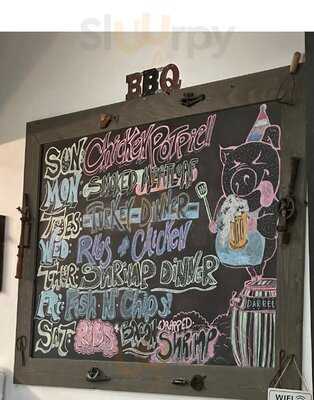 Sluurpy
BBQ
SUN: Chicken Pot Pie!!
MON: SMOKED MEATLOAF
TUES: TURKEY DINNER
WED: RIBS & CHICKEN
THUR: SHRIMP DINNER
FRI: FISH N' CHIPS!
SAT: RIBS & BACON WRAPPED SHRIMP
DARREL
WIFI